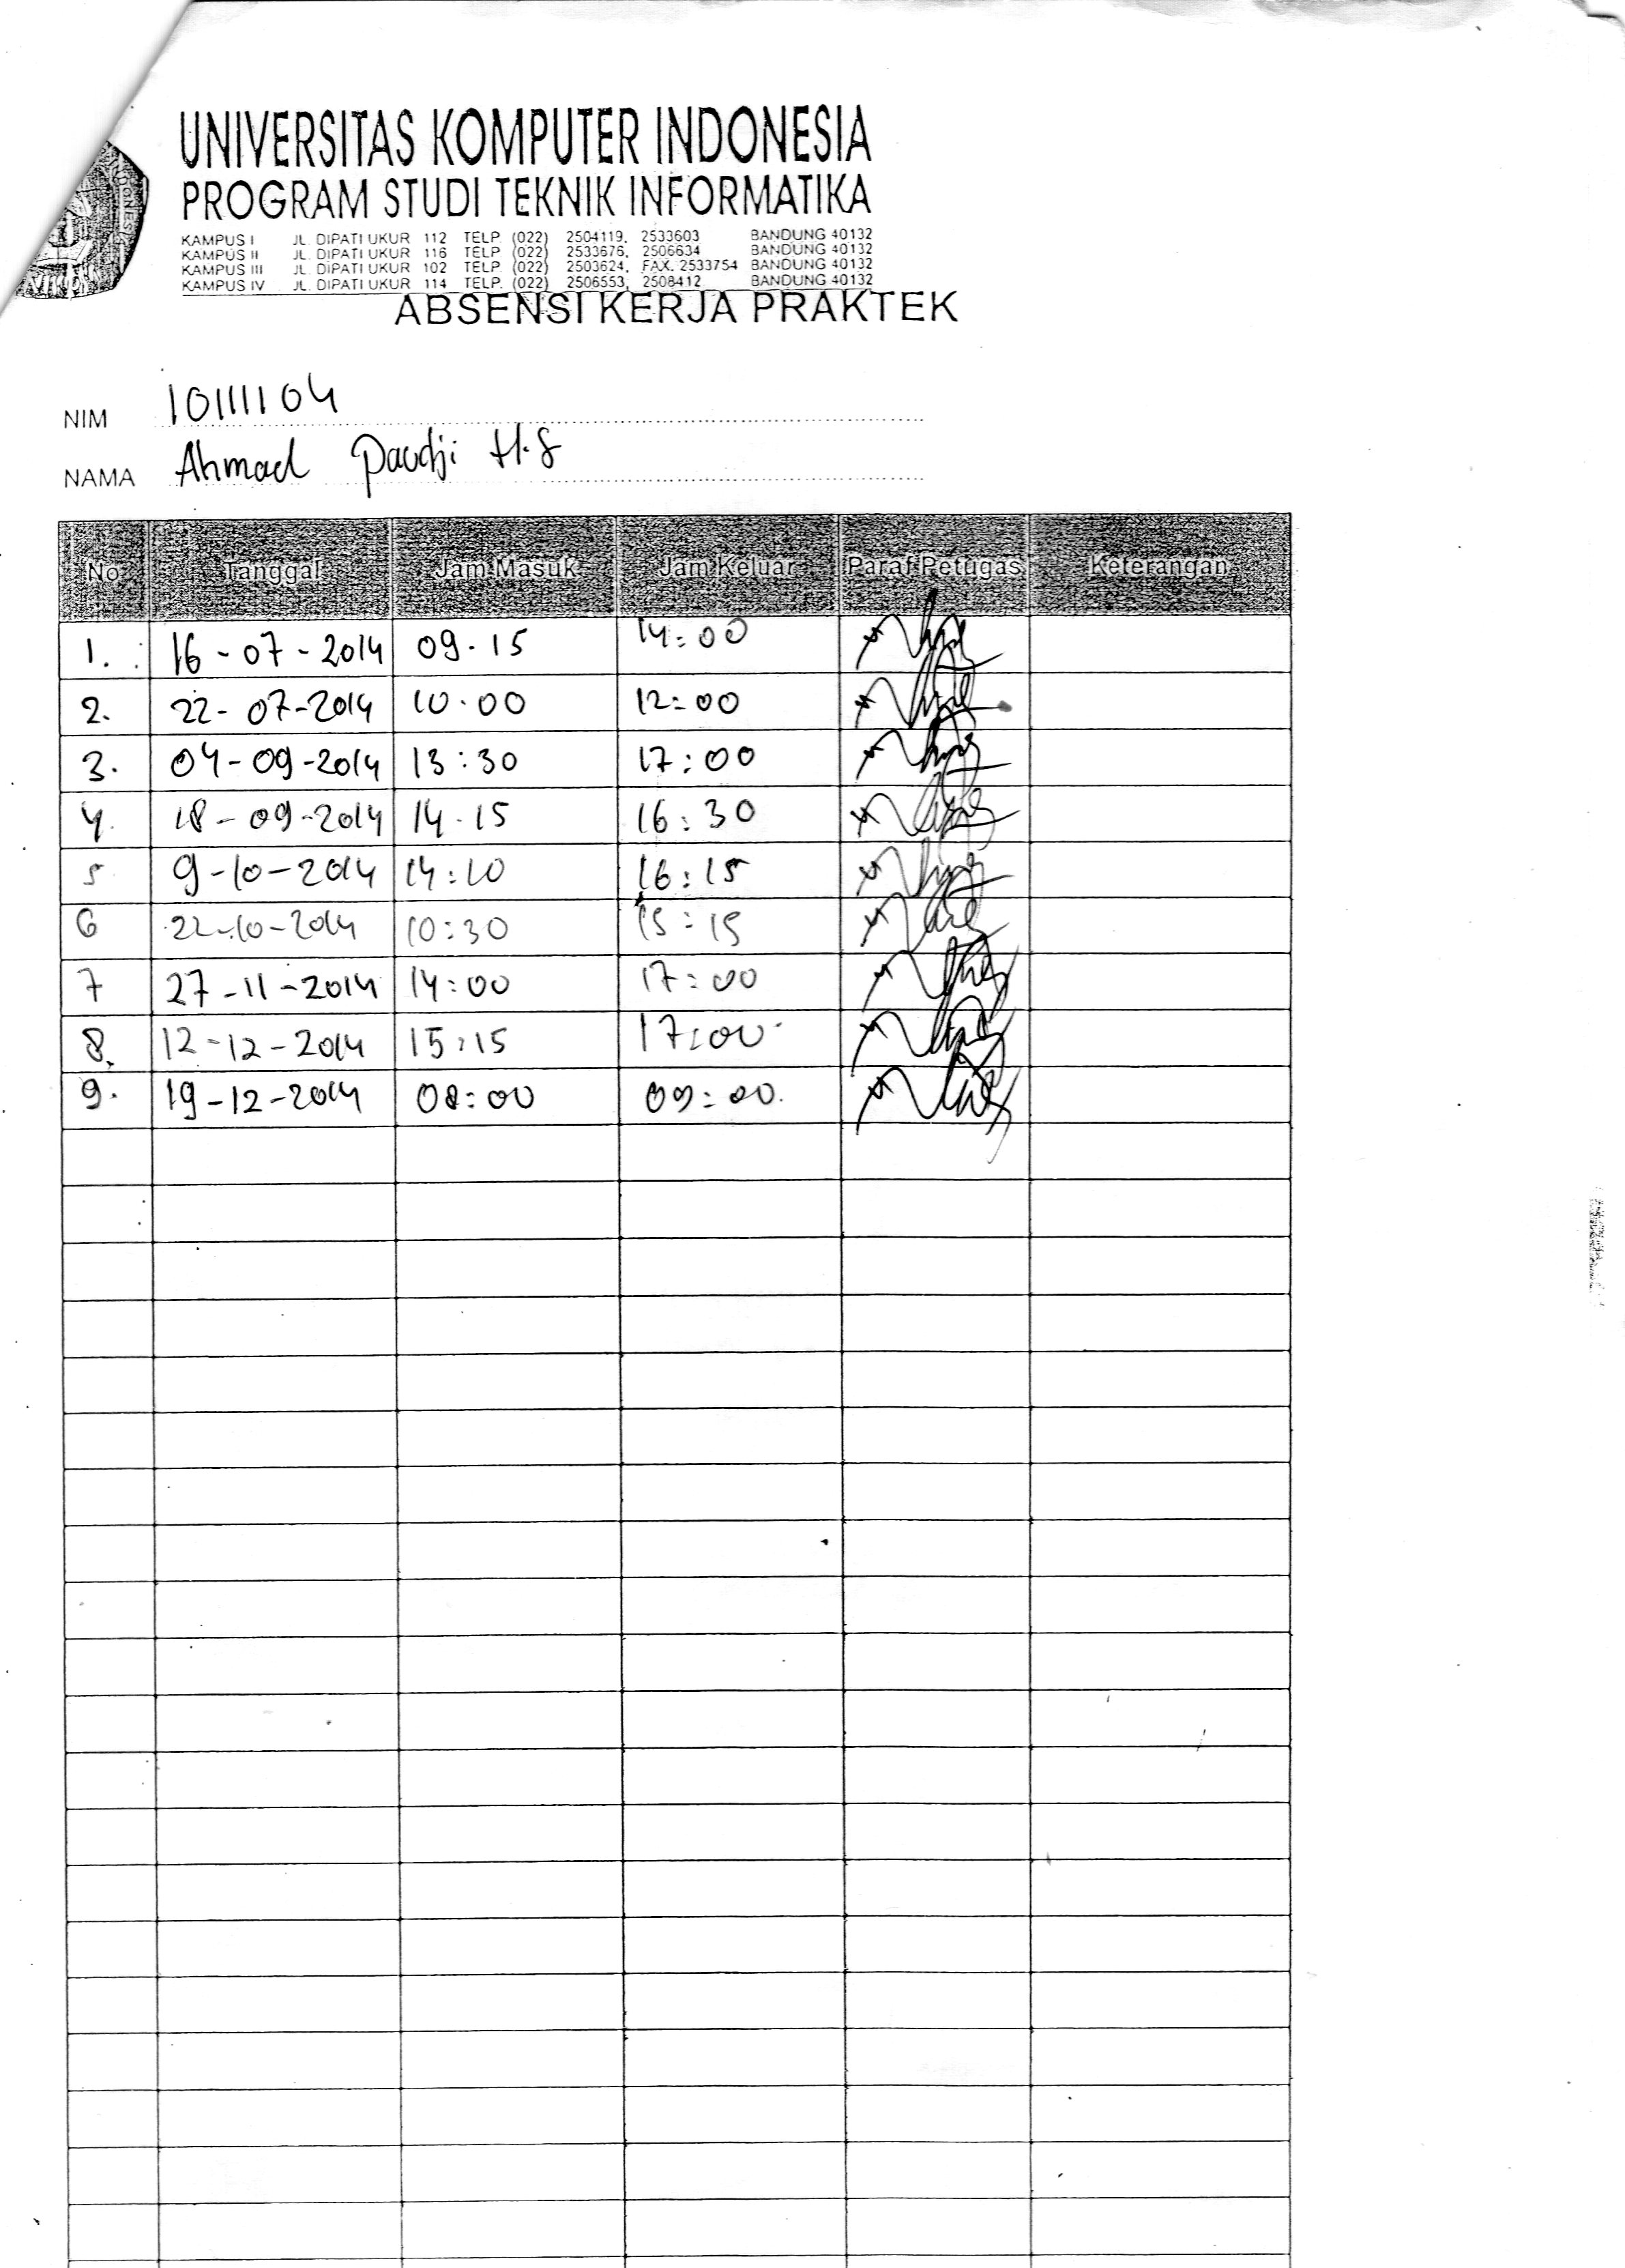 UNIVERSITAS KOMPUTER INDONESIA
PROGRAM STUDI TEKNIK INFORMATIKA
KAMPUS I JL. DIPATI UKUR 112 TELP. (022) 2504119, 2533603 BANDUNG 40132
KAMPUS II JL. DIPATI UKUR 116 TELP (022) 2533676, 2506634 BANDUNG 40132
KAMPUS III JL. DIPATI UKUR 102 TELP. (022) 2503624, FAX. 2533754 BANDUNG 40132
KAMPUS IV JL. DIPATI UKUR 114 TELP. (022) 2506553, 2508412 BANDUNG 40132
ABSENSI KERJA PRAKTEK
NIM 10111104
NAMA Ahmad Paudji H.S
No Tanggal Jam Masuk Jam Keluar Paraf Petugas Keterangan
1. 16-07-2014 09.15 14:00
2. 22-07-2014 10.00 12:00
3. 04-09-2014 13:30 17:00
4. 18-09-2014 14.15 16:30
5 9-10-2014 14:10 16:15
6 22-10-2014 10:30 15:15
7 27-11-2014 14:00 17:00
8. 12-12-2014 15:15 17:00
9. 19-12-2014 08:00 09:00